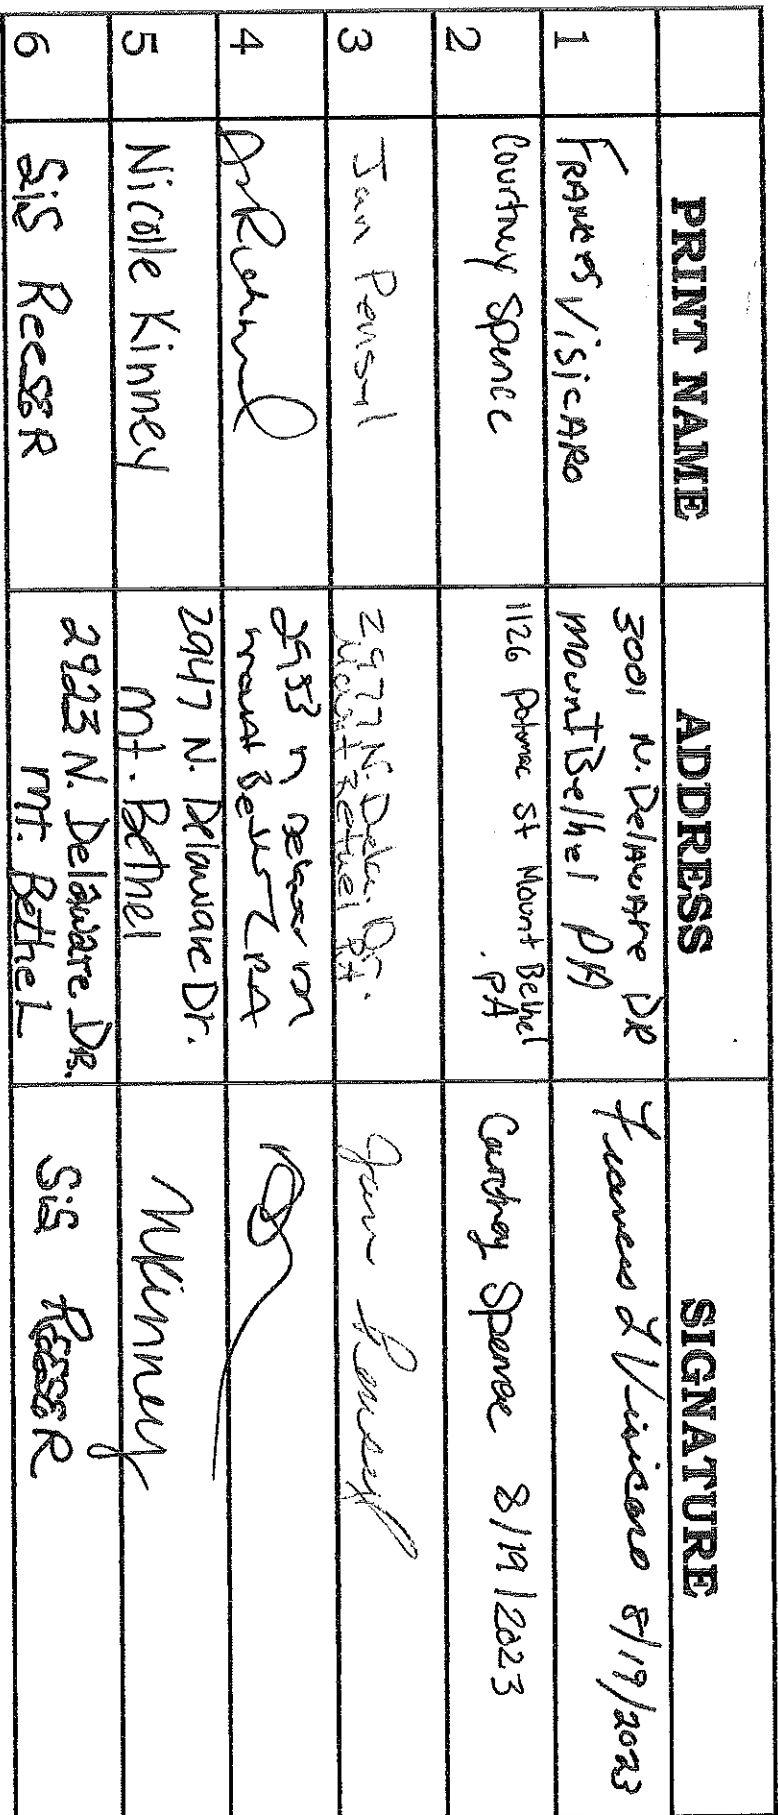 PRINT NAME ADDRESS SIGNATURE
1 FRANCES VISICARO 3001 N. DELAWARE DR
Mount Bethel PA
Frances L Visicaro 8/19/2023
2 Courtney Spence 1126 Potomac St Mount Bethel
PA
Courtney Spence 8/19/2023
3 Jan Pensyl 2977 N. Dela. Dr.
Mount Bethel PA
Jan Pensyl
4 2953 N
Mount Bethel PA
5 Nicolle Kinney 2947 N. Delaware Dr.
Mt. Bethel
NKinney
6 SiS ReeseR 2923 N. Delaware DR.
MT. BetheL
SiS ReeseR